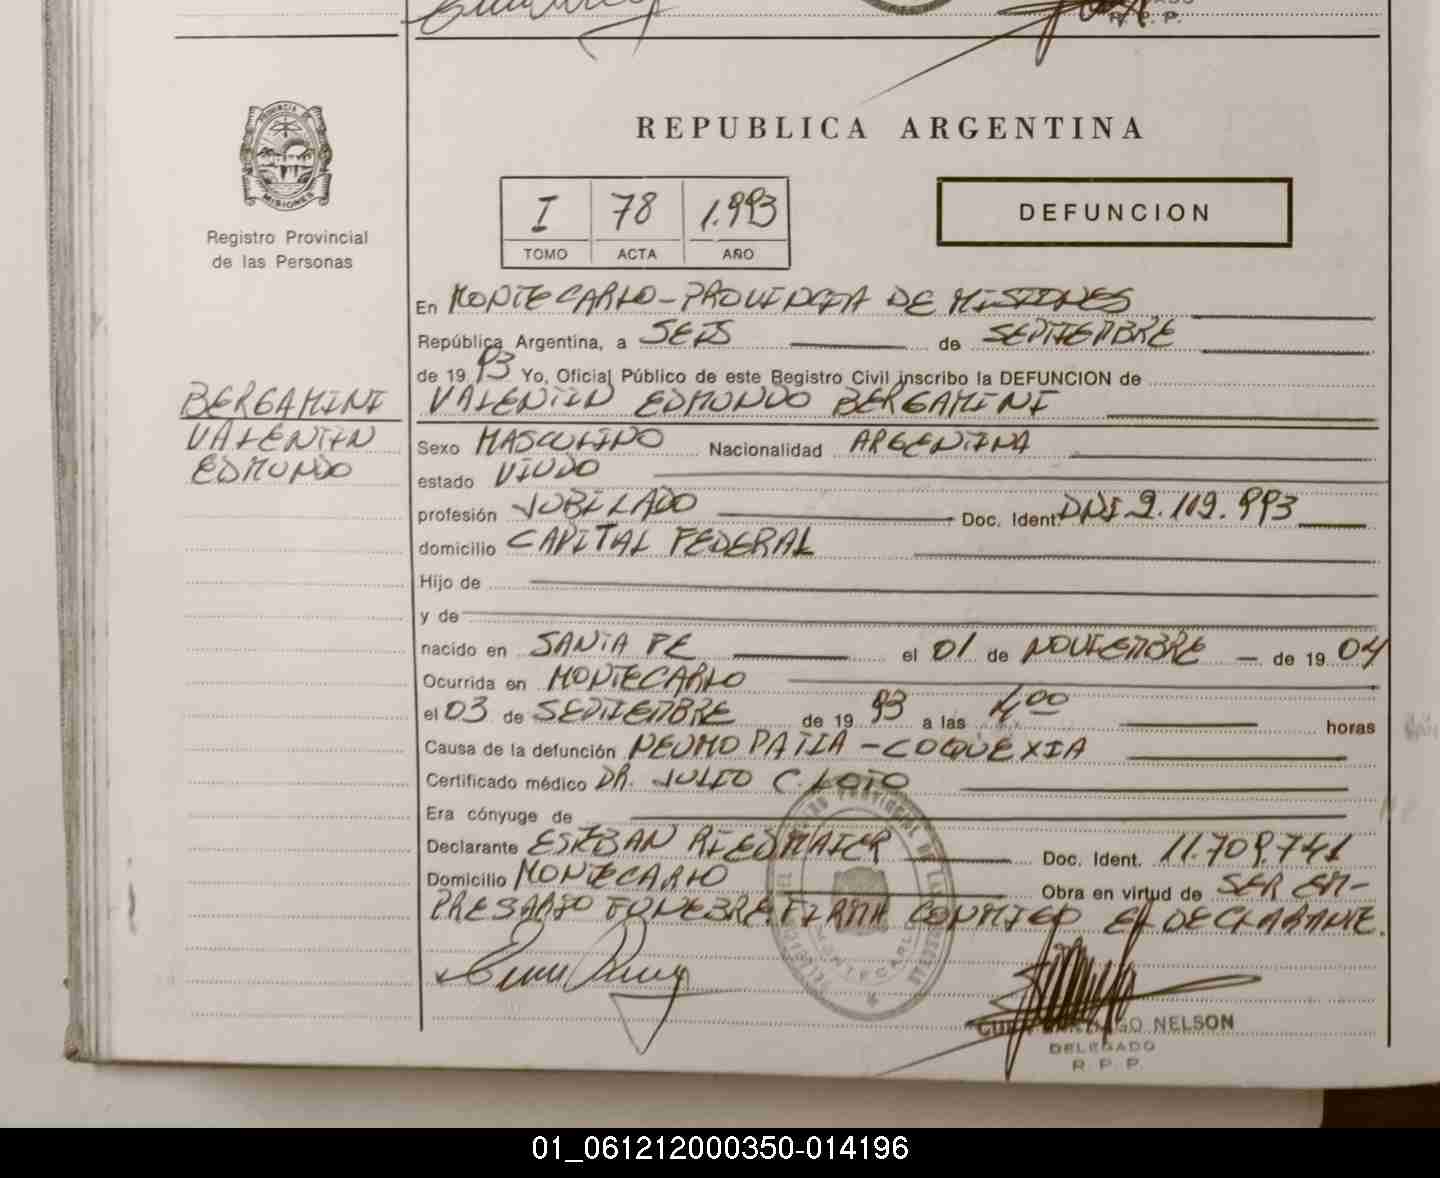 R. P. P.
PROVINCIA DE MISIONES
Registro Provincial
de las Personas
REPUBLICA ARGENTINA
I 78 1.993
TOMO ACTA AÑO
DEFUNCION
En MONTECARLO-PROVINCIA DE MISIONES
República Argentina, a SEIS de SEPTIEMBRE
de 1993 Yo, Oficial Público de este Registro Civil inscribo la DEFUNCION de
VALENTIN EDMUNDO BERGAMINI
BERGAMINI
VALENTIN
EDMUNDO
Sexo MASCULINO Nacionalidad ARGENTINA
estado VIUDO
profesión JUBILADO Doc. Ident. DNI 2.112.993
domicilio CAPITAL FEDERAL
Hijo de
y de
nacido en SANTA FE el 01 de NOVIEMBRE de 1904
Ocurrida en MONTECARLO
el 03 de SEPTIEMBRE de 1993 a las horas
Causa de la defunción NEUMOPATIA - COQUEXIA
Certificado médico DR. JULIO C. LOTO
Era cónyuge de
Declarante ESTEBAN RIEDMAIER Doc. Ident. 11.709.741
Domicilio MONTECARLO Obra en virtud de SER EM-
PRESARIO FUNEBRE. FIRMA CONMIGO EL DECLARANTE.
MONTECARLO
NELSON
DELEGADO
R. P. P.
01_061212000350-014196